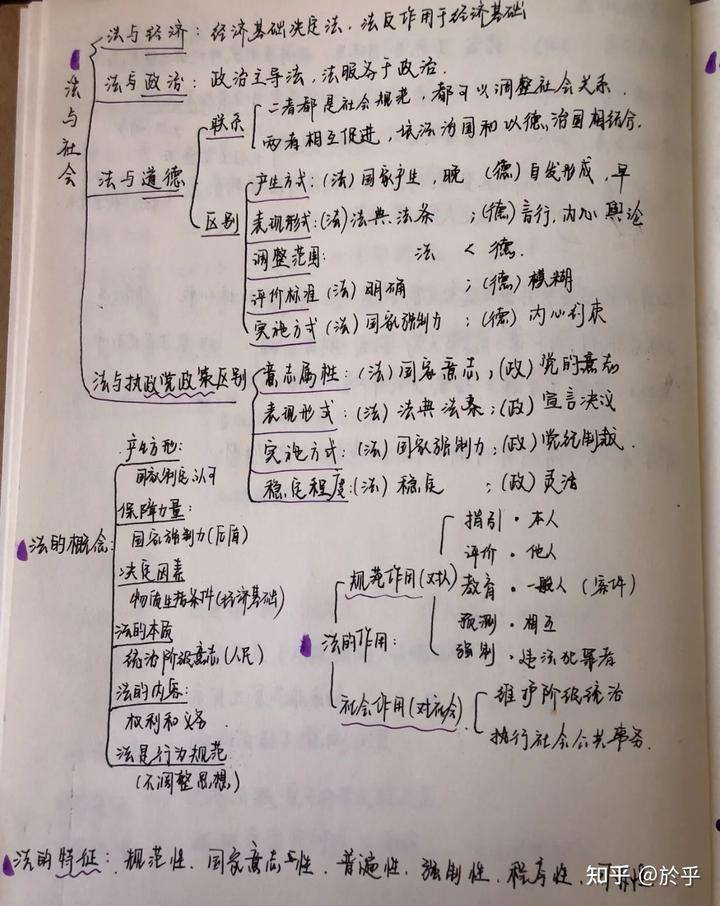 法与社会
法与经济：经济基础决定法，法反作用于经济基础
法与政治：政治主导法，法服务于政治.
法与道德
联系
二者都是社会规范，都可以调整社会关系.
两者相互促进，依法治国和以德治国相结合.
区别
产生方式：(法)国家产生，晚 (德)自发形成，早
表现形式：(法)法典、法条；(德)言行，内心 舆论
调整范围： 法 < 德.
评价标准 (法)明确；(德)模糊
实施方式 (法)国家强制力；(德)内心约束
法与执政党政策区别
意志属性：(法)国家意志；(政)党的意志
表现形式：(法)法典法条；(政)宣言决议
实施方式：(法)国家强制力；(政)党纪制裁.
稳定程度：(法)稳定；(政)灵活
法的概念：
产生方形：
国家制定、认可
保障力量：
国家强制力(后盾)
决定因素
物质生活条件(经济基础)
法的本质
统治阶级意志(人民)
法的内容：
权利和义务.
法是行为规范
(不调整思想)
法的作用：
规范作用(对人)
指引·本人
评价·他人
教育·一般人(案件)
预测·相互
强制·违法犯罪者
社会作用(对社会)
维护阶级统治
执行社会公共事务.
法的特征：规范性、国家意志性、普遍性、强制性、程序性、可诉性
知乎 @於乎